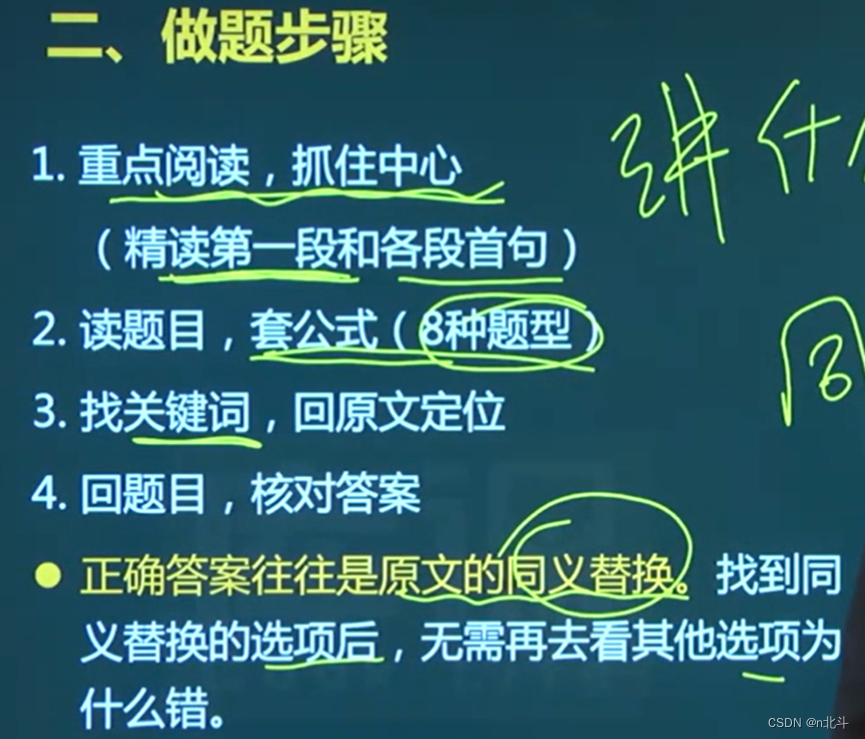 二、做题步骤
1. 重点阅读，抓住中心
（精读第一段和各段首句）
2. 读题目，套公式（8种题型）
3. 找关键词，回原文定位
4. 回题目，核对答案
● 正确答案往往是原文的同义替换。找到同
义替换的选项后，无需再去看其他选项为
什么错。
讲什
同
CSDN @n北斗